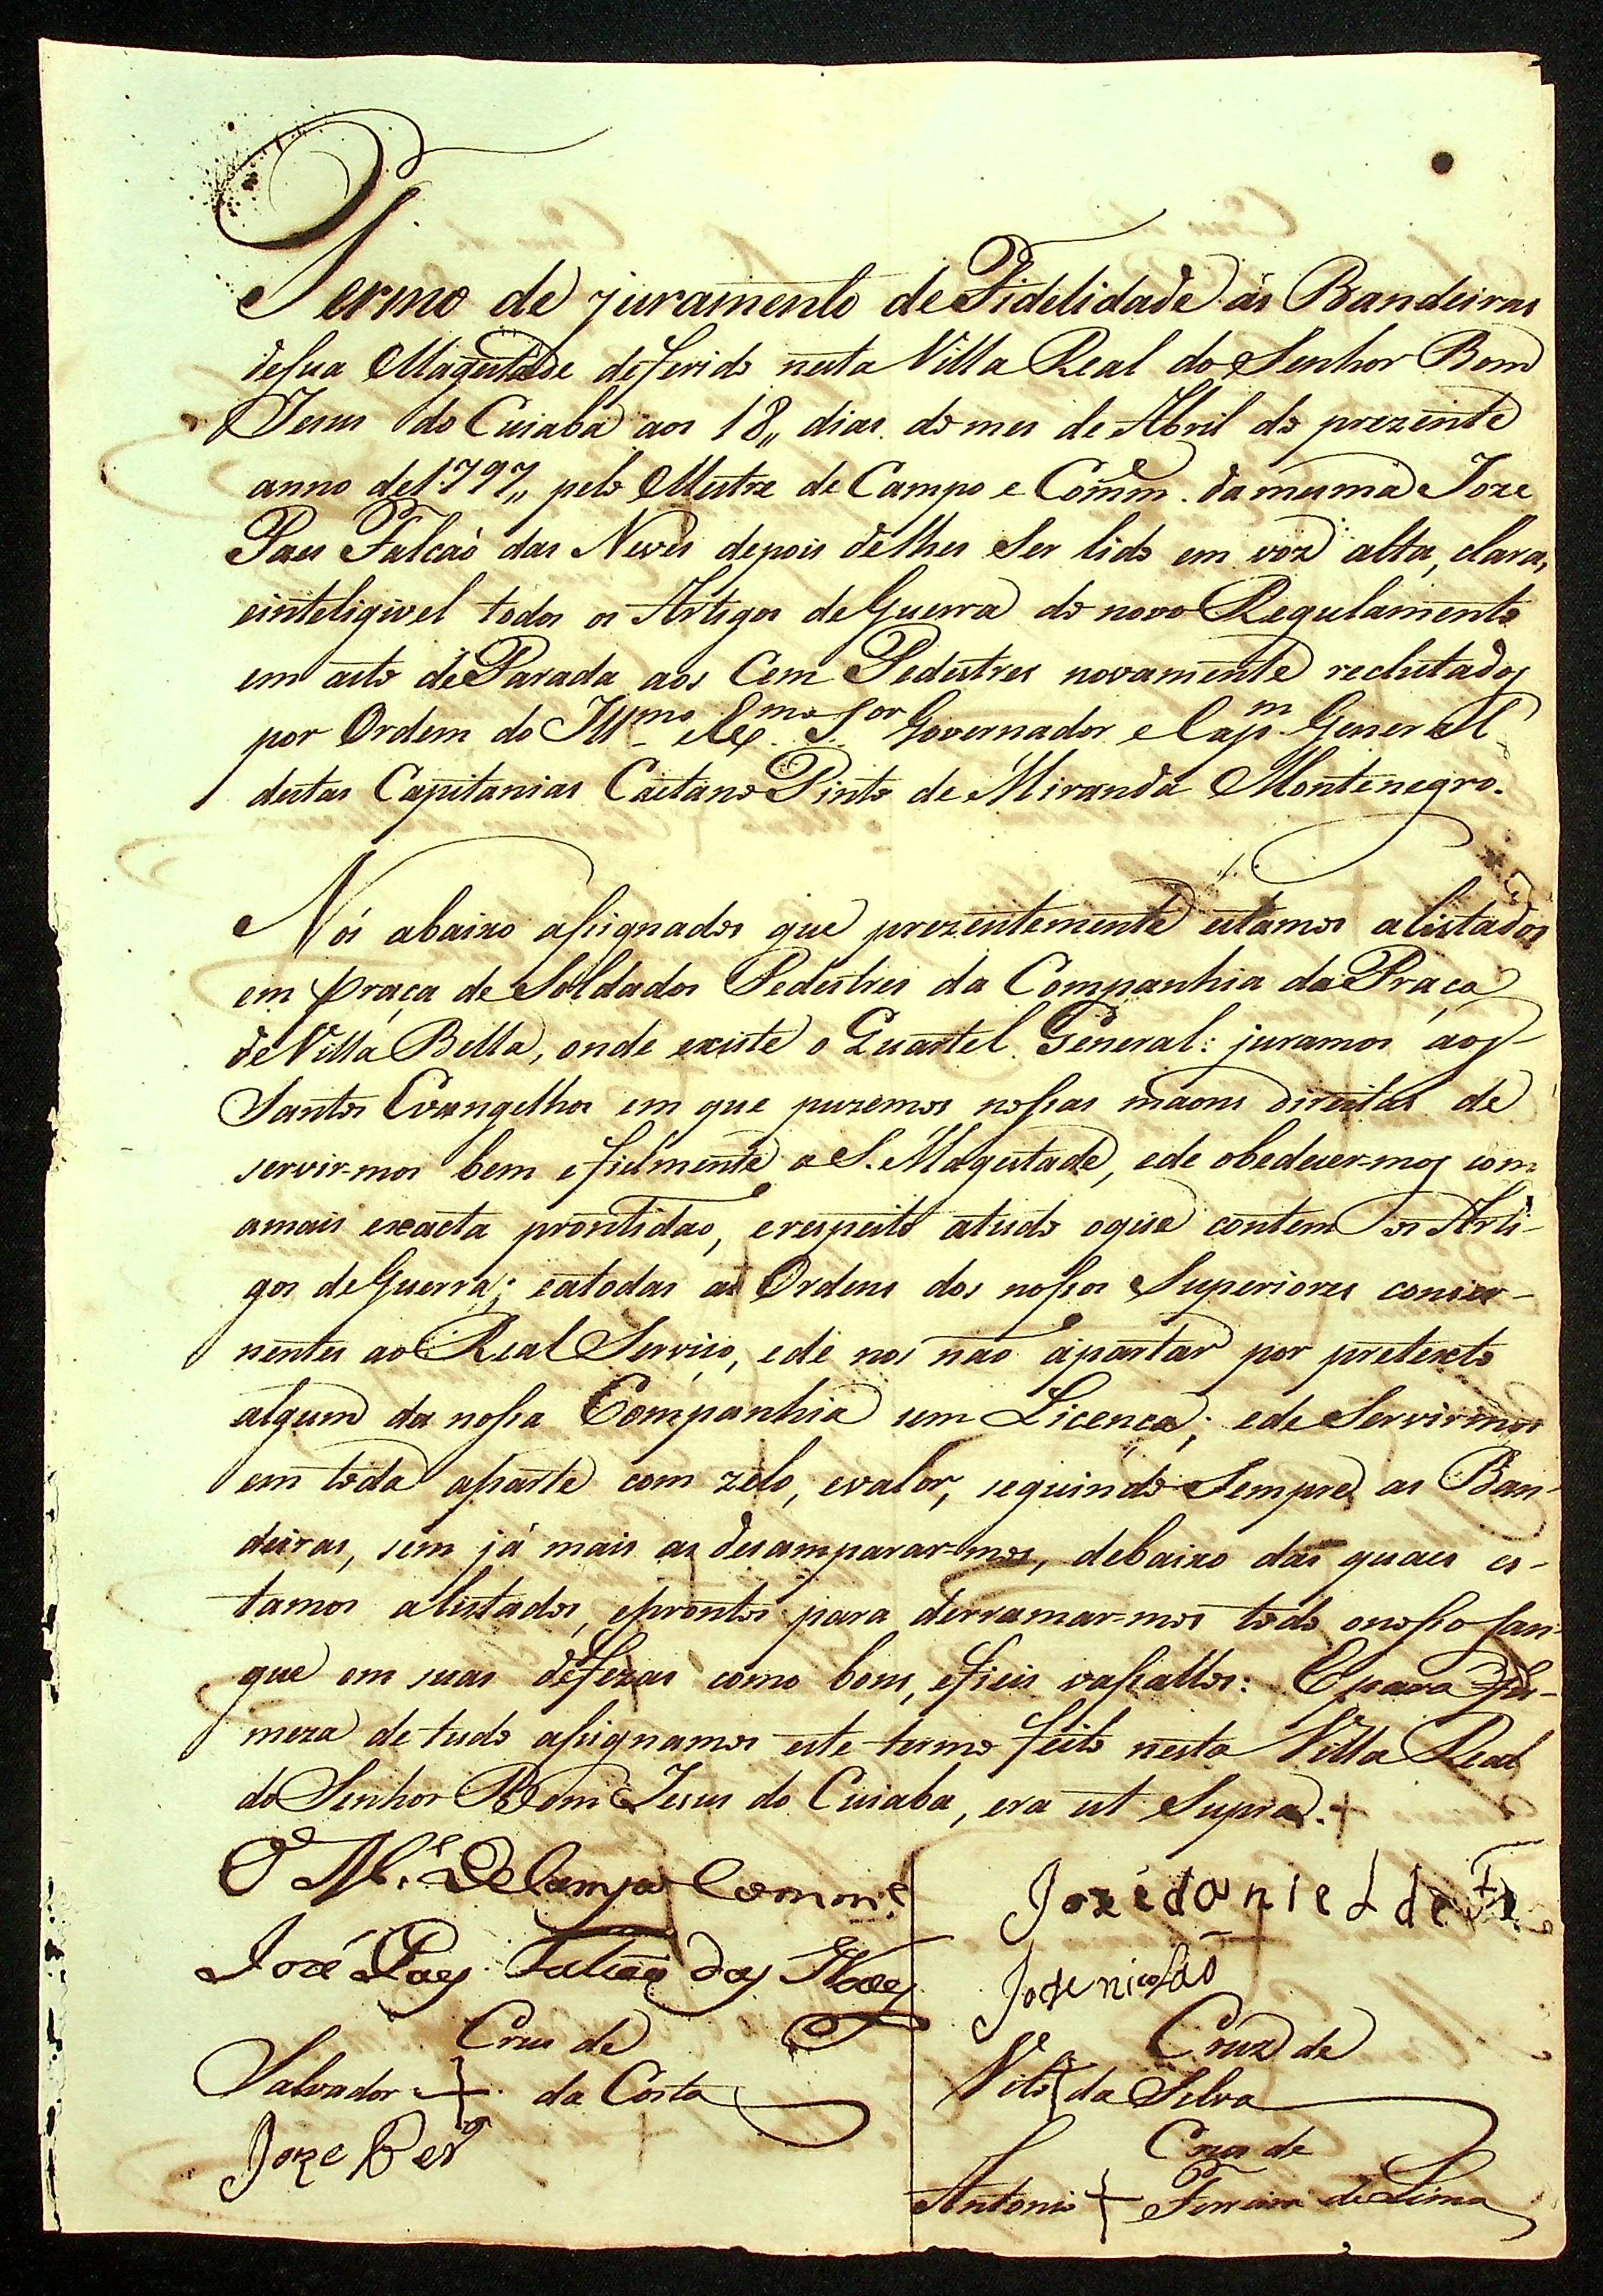 Termo de juramento de Fidelidade ás Bandeiras
desua Magestade deferido nesta Villa Real do Senhor Bom
Jesus do Cuiabá aos 18,, dias do mes de Abril do prezente
anno de 1797,, pelo Mestre de Campo e Comm.e da mesma Joze
Paes Falcaò das Neves depois delhes ser lido em voz alta, clara,
einteligivel todos os Artigos de Guerra do novo Regulamento
em acto de Parada aos Cem Pedestres novamente reclutados
por Ordem do Ill.mo e Ex.mo S.or Governador e Cap.m General
destas Capitanias Caetano Pinto de Miranda Montenegro.
Nós abaixo assignados que prezentemente estamos alistados
em praça de Soldados Pedestres da Companhia da Praça
de Villa Bella, onde existe o Quartel General: juramos aos
Santos Evangelhos em que puzemos nossas maons direitas de
servir-mos bem efielmente a S. Magestade, ede obedecer-mos com
amais exacta prontidaõ, erespeito atudo oque contem os Arti-
gos de Guerra; eatodas as Ordens dos nossos Superiores conser-
nentes ao Real Serviço, ede nos naõ apartar por pretexto
algum da nossa Companhia sem Licença; ede Servirmos
em toda aparte com zelo, evalor, seguindo Sempre as Ban-
deiras, sem já mais as desamparar-mos, debaixo das quaes es-
tamos alistados, eprontos para derramar-mos todo onosso san-
gue em suas defezas como bons, efieis vassallos: Epara fir-
meza de tudo assignamos este termo feito nesta Villa Real
do Senhor Bom Jesus do Cuiaba, era ut Supra.
O M.e De Campo Comm.e
José Paes Falcão das Neves
Crus de
Salvador + da Costa
Joze
Jozé daniel de
Joze nicolao
Cruz de
Vito + da Silva
Crus de
Antonio + Ferreira de Lima